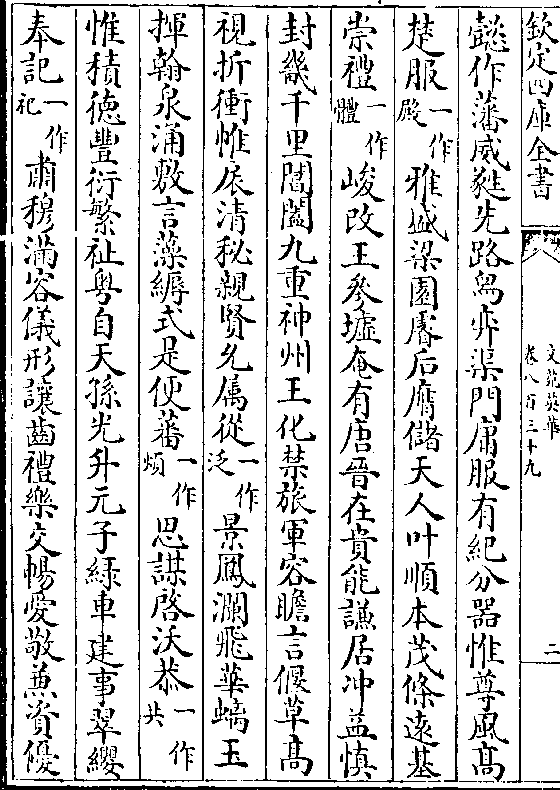 欽定四庫全書
文苑英華
卷八百三十九
二
懿作藩威蕤先路舄弈渠門庸服有紀分器惟尊風高
楚服一作殿雅盛梁園睿后膺儲天人叶順本茂條遠基
崇禮一作體峻改王參墟奄有唐晉在貴能謙居冲益慎
封畿千里閶闔九重神州王化禁旅軍容瞻言偃草高
視折衝惟扆清秘親賢允屬從一作泛景鳳瀾飛華螭玉
揮翰泉涌敷言藻縟式是便蕃一作煩思謀啓沃恭一作共
惟積德豐衍繁祉粤自天孫光升元子緑車建事翠纓
奉記一作祀肅穆滿容儀形讓齒禮樂交暢愛敬兼資優